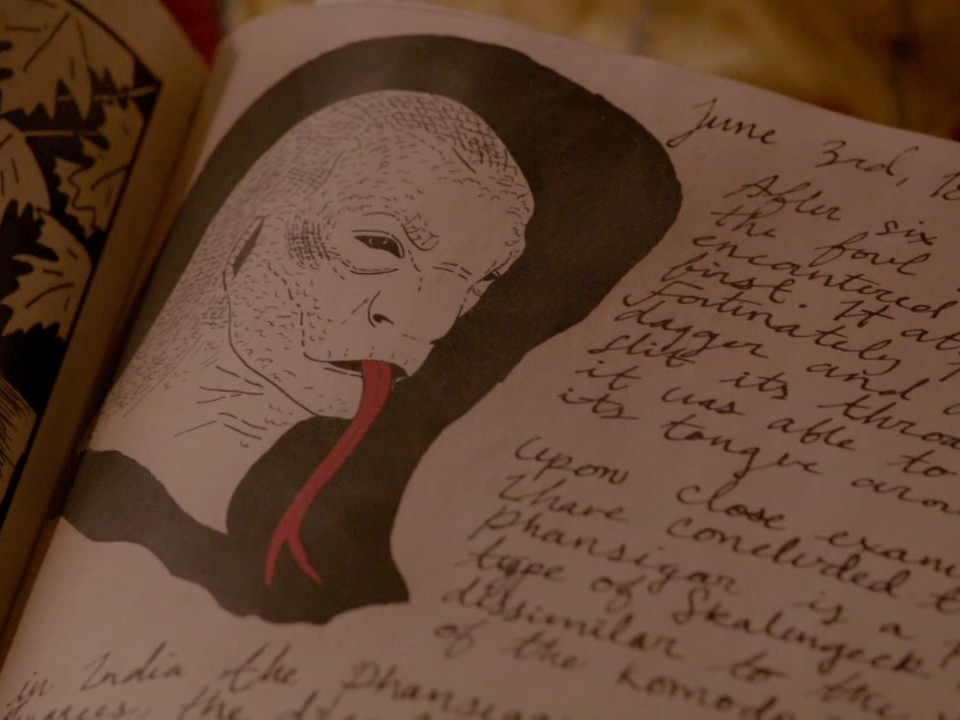 June 3rd, 18
After six
the foul
encantered
first. It
Fortunately
dagger and
slit its throa
it was able to
its tongue aro
Upon close exami
I have concluded t
Phansigar is a
type of Skalengeck
dissimilar to the
of the Komodo
in India the Phansiga
the